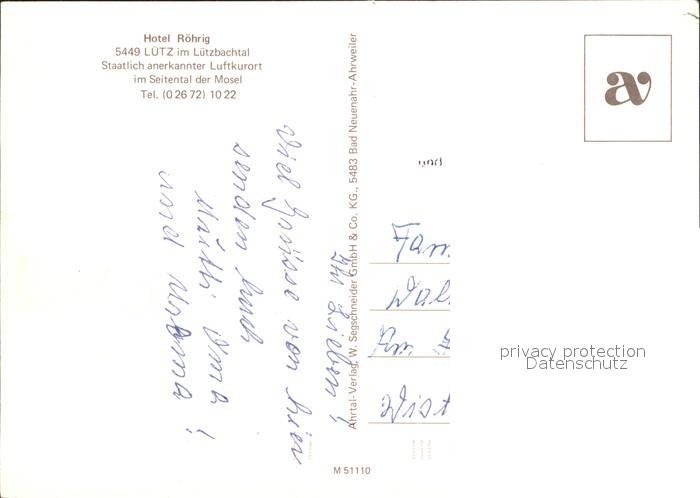 Hotel Röhrig
5449 LÜTZ im Lützbachtal
Staatlich anerkannter Luftkurort
im Seitental der Mosel
Tel. (0 26 72) 10 22
Ahrtal-Verlag, W. Segschneider GmbH & Co. KG., 5483 Bad Neuenahr-Ahrweiler
av
und
Ihr Lieben!
Viel Grüsse von hier
senden Euch
Mutti Oma!
und
Fam
Wal
Am
Wist
privacy protection
Datenschutz
M 51110